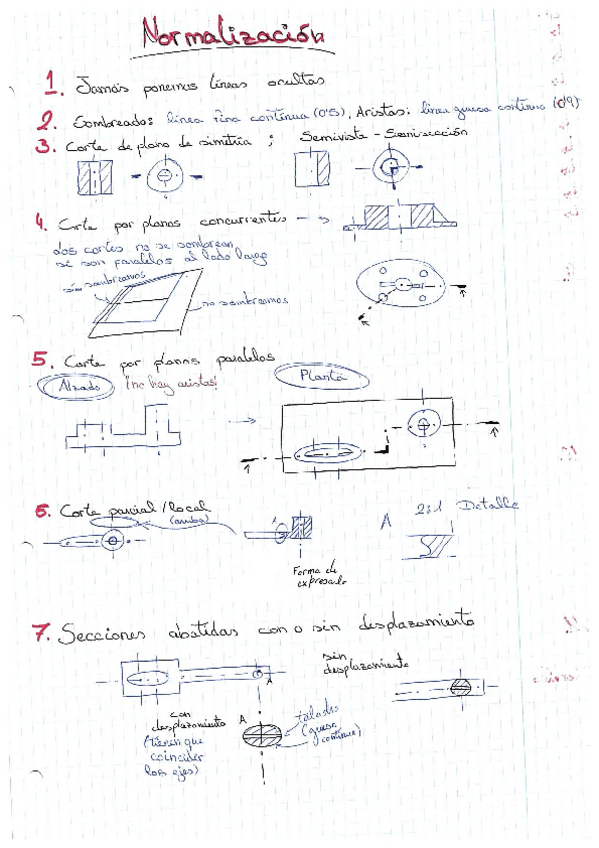 Normalización
1. Jamás ponemos líneas ocultas
2. Sombreado: línea fina continua (0'5), Aristas: línea gruesa continua (0'9)
3. Corte de plano de simetría ; Semivista - Semisección
4. Corte por planos concurrentes -->
dos cortes no se sombrean
si son paralelos al lado largo
sin sombreamos
no sombreamos
5. Corte por planos paralelos
Alzado ¡no hay aristas!
Planta
6. Corte parcial / local
(arriba)
A 2:1 Detalle
Forma de
expresarlo
7. Secciones abatidas con o sin desplazamiento
A
sin
desplazamiento
con
desplazamiento
(tienen que
coincidir
los ejes)
A
taladro
(gruesa
continua)